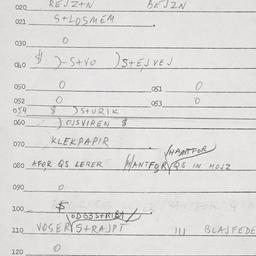 020 REJZ+N BEJZN
021 S+LDSMEM
030 0
040 $ )-S+VO )S+EJVEJ
050 0 051 0
052 0 053 0
054 $ )S+URIK
060 ) OJSVIREN $
070 KLEKPAPIR
HANTFOR
080 AFOR QS LERER HANTFOR QS IN HOJZ
090 0
100 $
110 VOSER S+RAJPT 111 BLAJFEDE
120 0